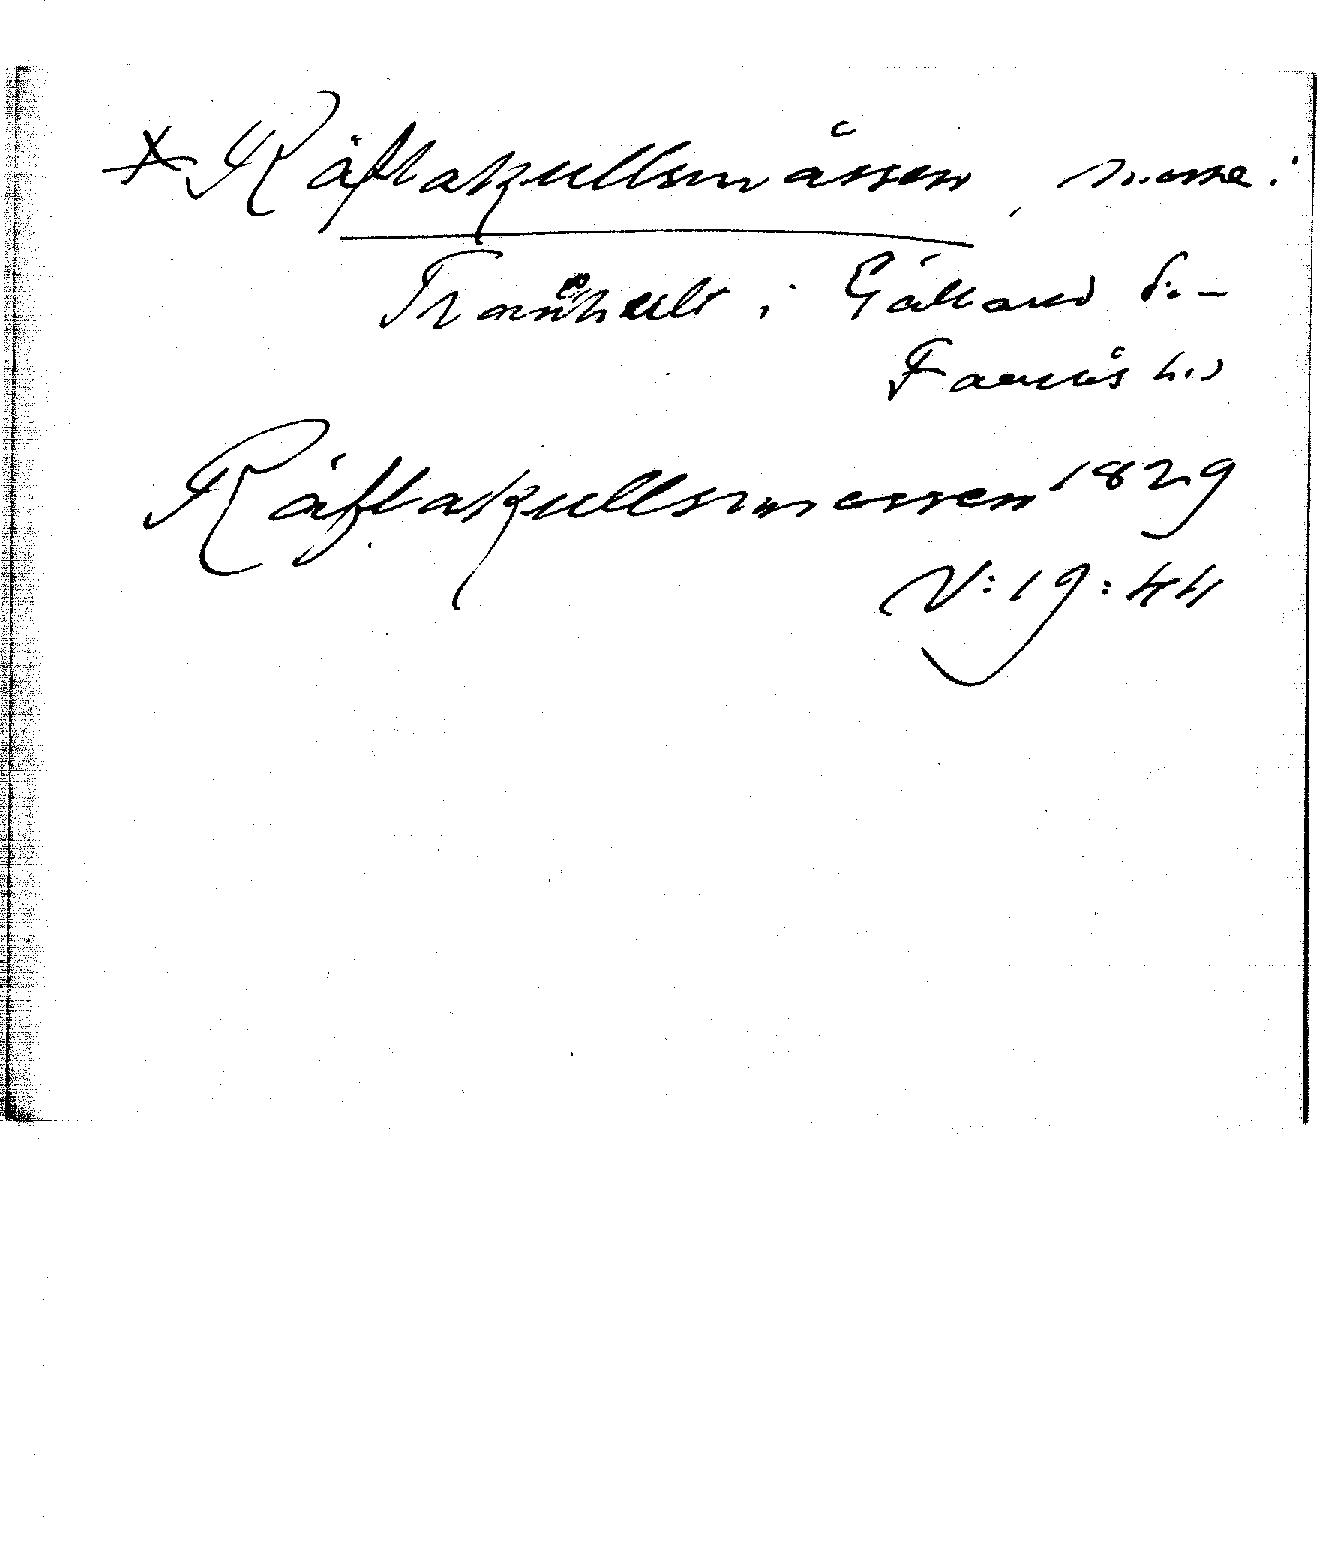 * Räflakullsmåssen, mosse i
Tranhult i Gällared sn
Faurås hd
Räflakullsmossen 1829
N:19:44